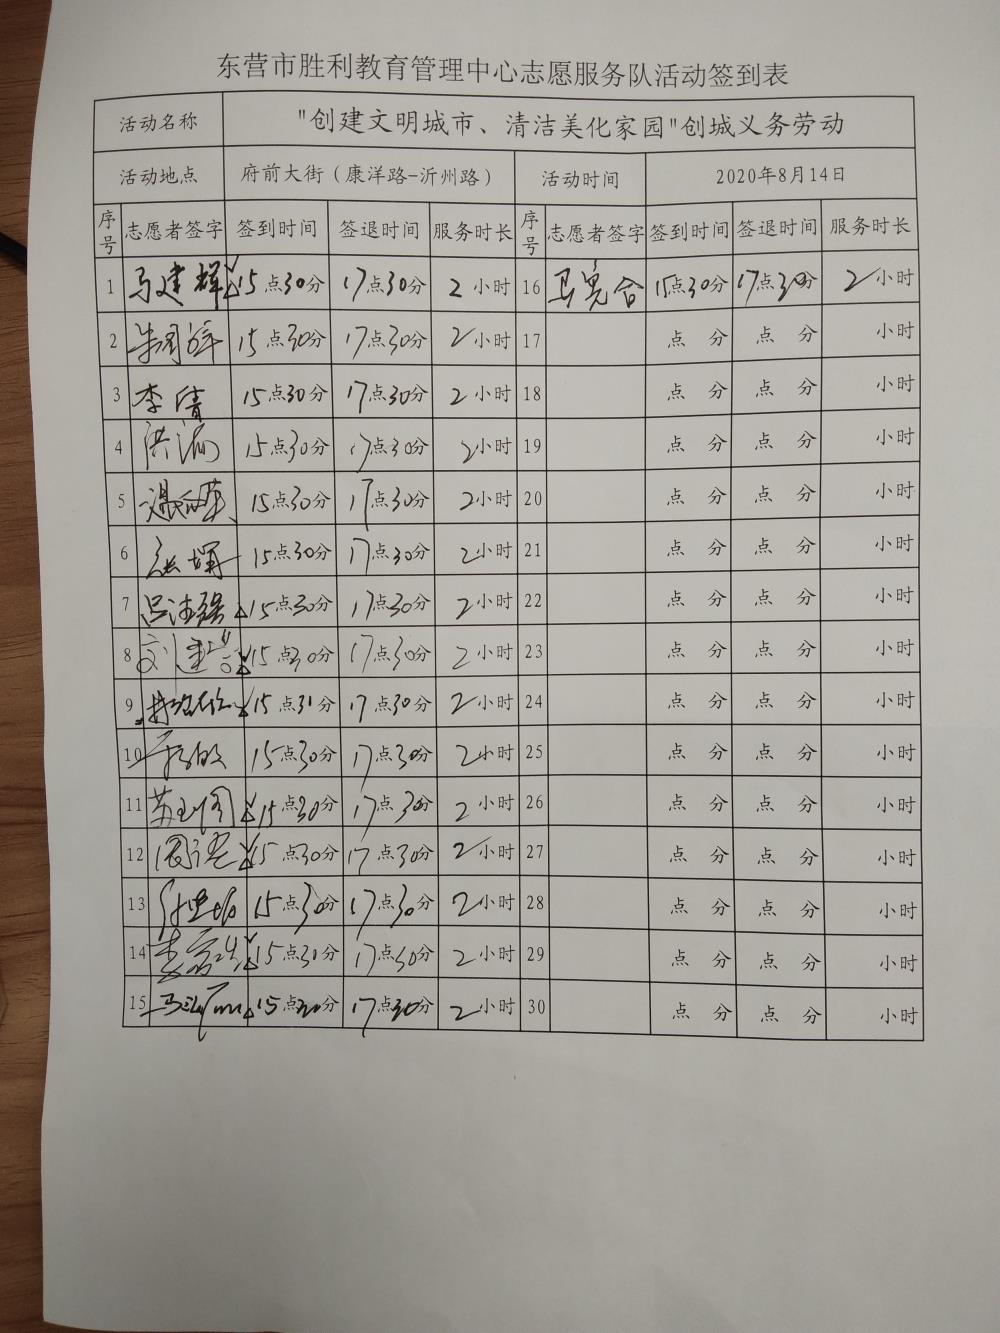 东营市胜利教育管理中心志愿服务队活动签到表
活动名称 "创建文明城市、清洁美化家园"创城义务劳动
活动地点 府前大街(康洋路-沂州路) 活动时间 2020年8月14日
序号 志愿者签字 签到时间 签退时间 服务时长 序号 志愿者签字 签到时间 签退时间 服务时长
1 马建群 15点30分 17点30分 2小时 16 15点30分 17点30分 2小时
2 15点30分 17点30分 2小时 17 点 分 点 分 小时
3 李倩 15点30分 17点30分 2小时 18 点 分 点 分 小时
4 洪海 15点30分 17点30分 2小时 19 点 分 点 分 小时
5 15点30分 17点30分 2小时 20 点 分 点 分 小时
6 15点30分 17点30分 2小时 21 点 分 点 分 小时
7 15点30分 17点30分 2小时 22 点 分 点 分 小时
8 15点30分 17点30分 2小时 23 点 分 点 分 小时
9 15点31分 17点30分 2小时 24 点 分 点 分 小时
10 15点30分 17点30分 2小时 25 点 分 点 分 小时
11 15点30分 17点30分 2小时 26 点 分 点 分 小时
12 15点30分 17点30分 2小时 27 点 分 点 分 小时
13 15点30分 17点30分 2小时 28 点 分 点 分 小时
14 15点30分 17点30分 2小时 29 点 分 点 分 小时
15 15点30分 17点30分 2小时 30 点 分 点 分 小时